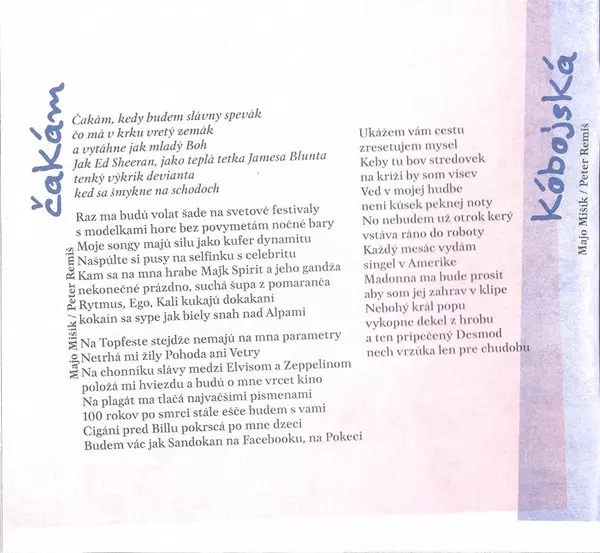 čakám
Majo Mišík / Peter Remiš
Čakám, kedy budem slávny spevák
čo má v krku vretý zemák
a vytáhne jak mladý Boh
Jak Ed Sheeran, jako teplá tetka Jamesa Blunta
tenký výkrik devianta
ked sa šmykne na schodoch
Raz ma budú volat šade na svetové festivaly
s modelkami hore bez povymetám nočné bary
Moje songy majú silu jako kufer dynamitu
Našpúlte si pusy na selfinku s celebritu
Kam sa na mna hrabe Majk Spirit a jeho gandža
nekonečné prázdno, suchá šupa z pomaranča
Rytmus, Ego, Kali kukajú dokakaní
kokaín sa sype jak biely snah nad Alpami
Na Topfeste stejdže nemajú na mna parametry
Netrhá mi žily Pohoda ani Vetry
Na chonníku slávy medzi Elvisom a Zeppelinom
položá mi hviezdu a budú o mne vrcet kino
Na plagát ma tlačá najvačšími písmenami
100 rokov po smrci stále ešče budem s vami
Cigáni pred Billu pokrscá po mne dzeci
Budem vác jak Sandokan na Facebooku, na Pokeci
Ukážem vám cestu
zresetujem mysel
Keby tu bov stredovek
na kríži by som visev
Ved v mojej hudbe
není kúsek peknej noty
No nebudem už otrok kerý
vstáva ráno do roboty
Každý mesác vydám
singel v Amerike
Madonna ma bude prosit
aby som jej zahrav v klipe
Nebohý král popu
vykopne dekel z hrobu
a ten pripečený Desmod
nech vrzúka len pre chudobu
Kóbojská
Majo Mišík / Peter Remiš